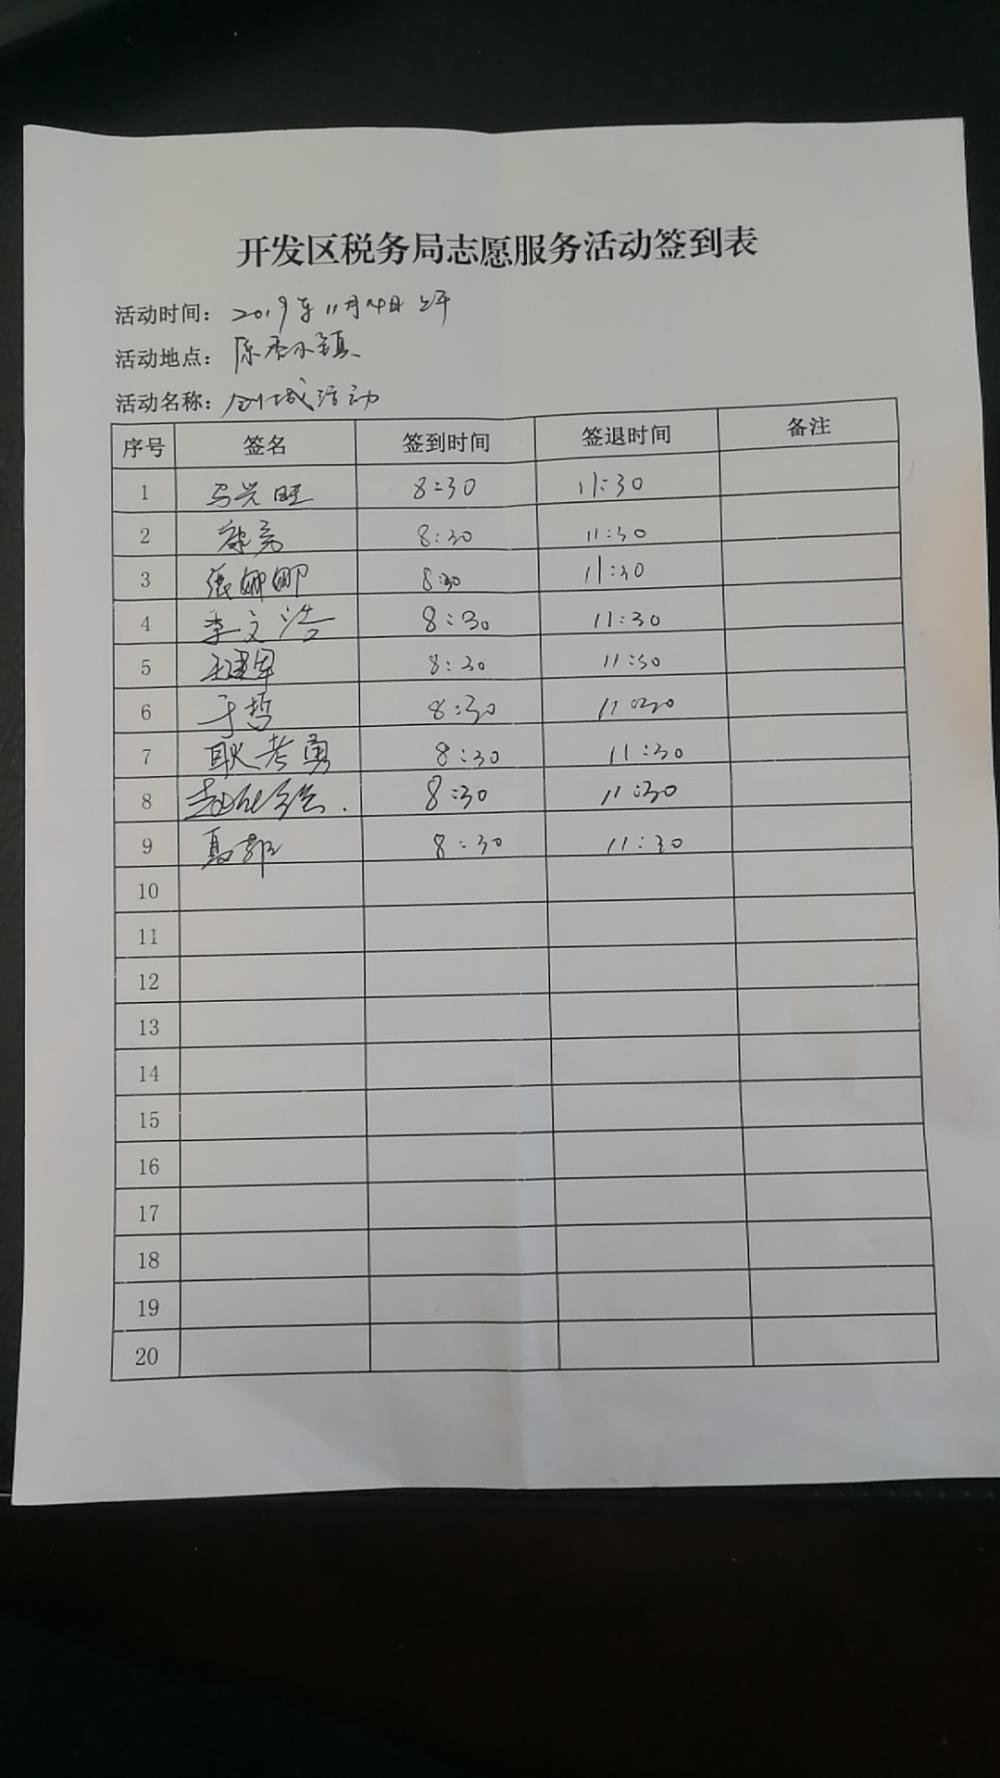 开发区税务局志愿服务活动签到表
活动时间：2019年11月4日上午
活动地点：陈杏水镇
活动名称：创城活动
序号 签名 签到时间 签退时间 备注
1 马兴旺 8:30 11:30
2 康亮 8:30 11:30
3 张娜娜 8:30 11:30
4 李文浩 8:30 11:30
5 王建军 8:30 11:30
6 于哲 8:30 11:30
7 耿考勇 8:30 11:30
8 8:30 11:30
9 8:30 11:30
10
11
12
13
14
15
16
17
18
19
20